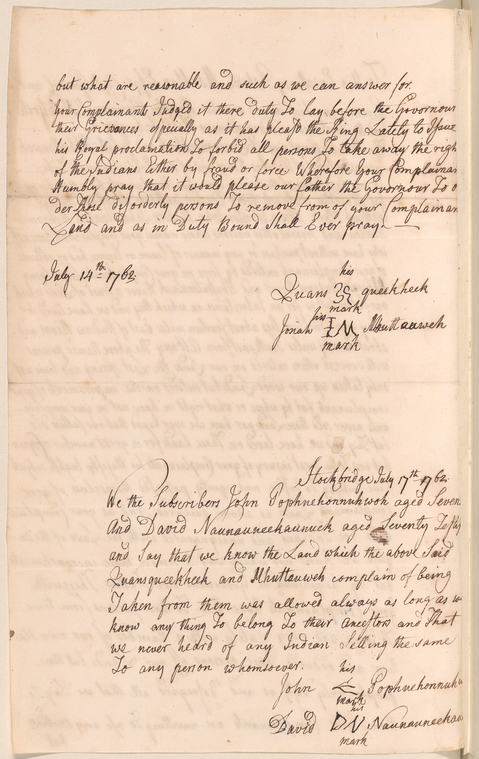 but what are reasonable and such as we can answer for
Your Complainants Judged it there Duty To lay before the Governour
their Grievances especially as it has pleasd the King Lately to Issue
his Royal proclamation To forbid all persons To take away the righ
of the Indians Either by fraud or force Wherefore Your Complainan
Humbly pray that it would please our father the Governour To o
der those disorderly persons To remove from of your Complainan
Land and as in Duty Bound Shall Ever pray
July 14th 1762
his
Quans queekheck
mark
his
Jonah I M Mhuttauweh
mark
Stockbridge July 17th 1762
We the Subscribers John Pophnehonnuhwoh aged Seven
And David Naunauneehaunuck aged Seventy Testify
and Say that we know the Land which the above Said
Quansqueekheck and Mhuttauweh complain of being
Taken from them was allowed always as long as w
know any thing To belong To their Ancestors and that
we never heard of any Indian Selling the same
To any person whomsoever.
his
John Pophnehonnuhw
mark
his
David DN Naunauneehau
mark